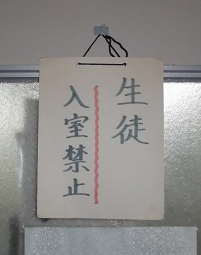 生徒
入室禁止